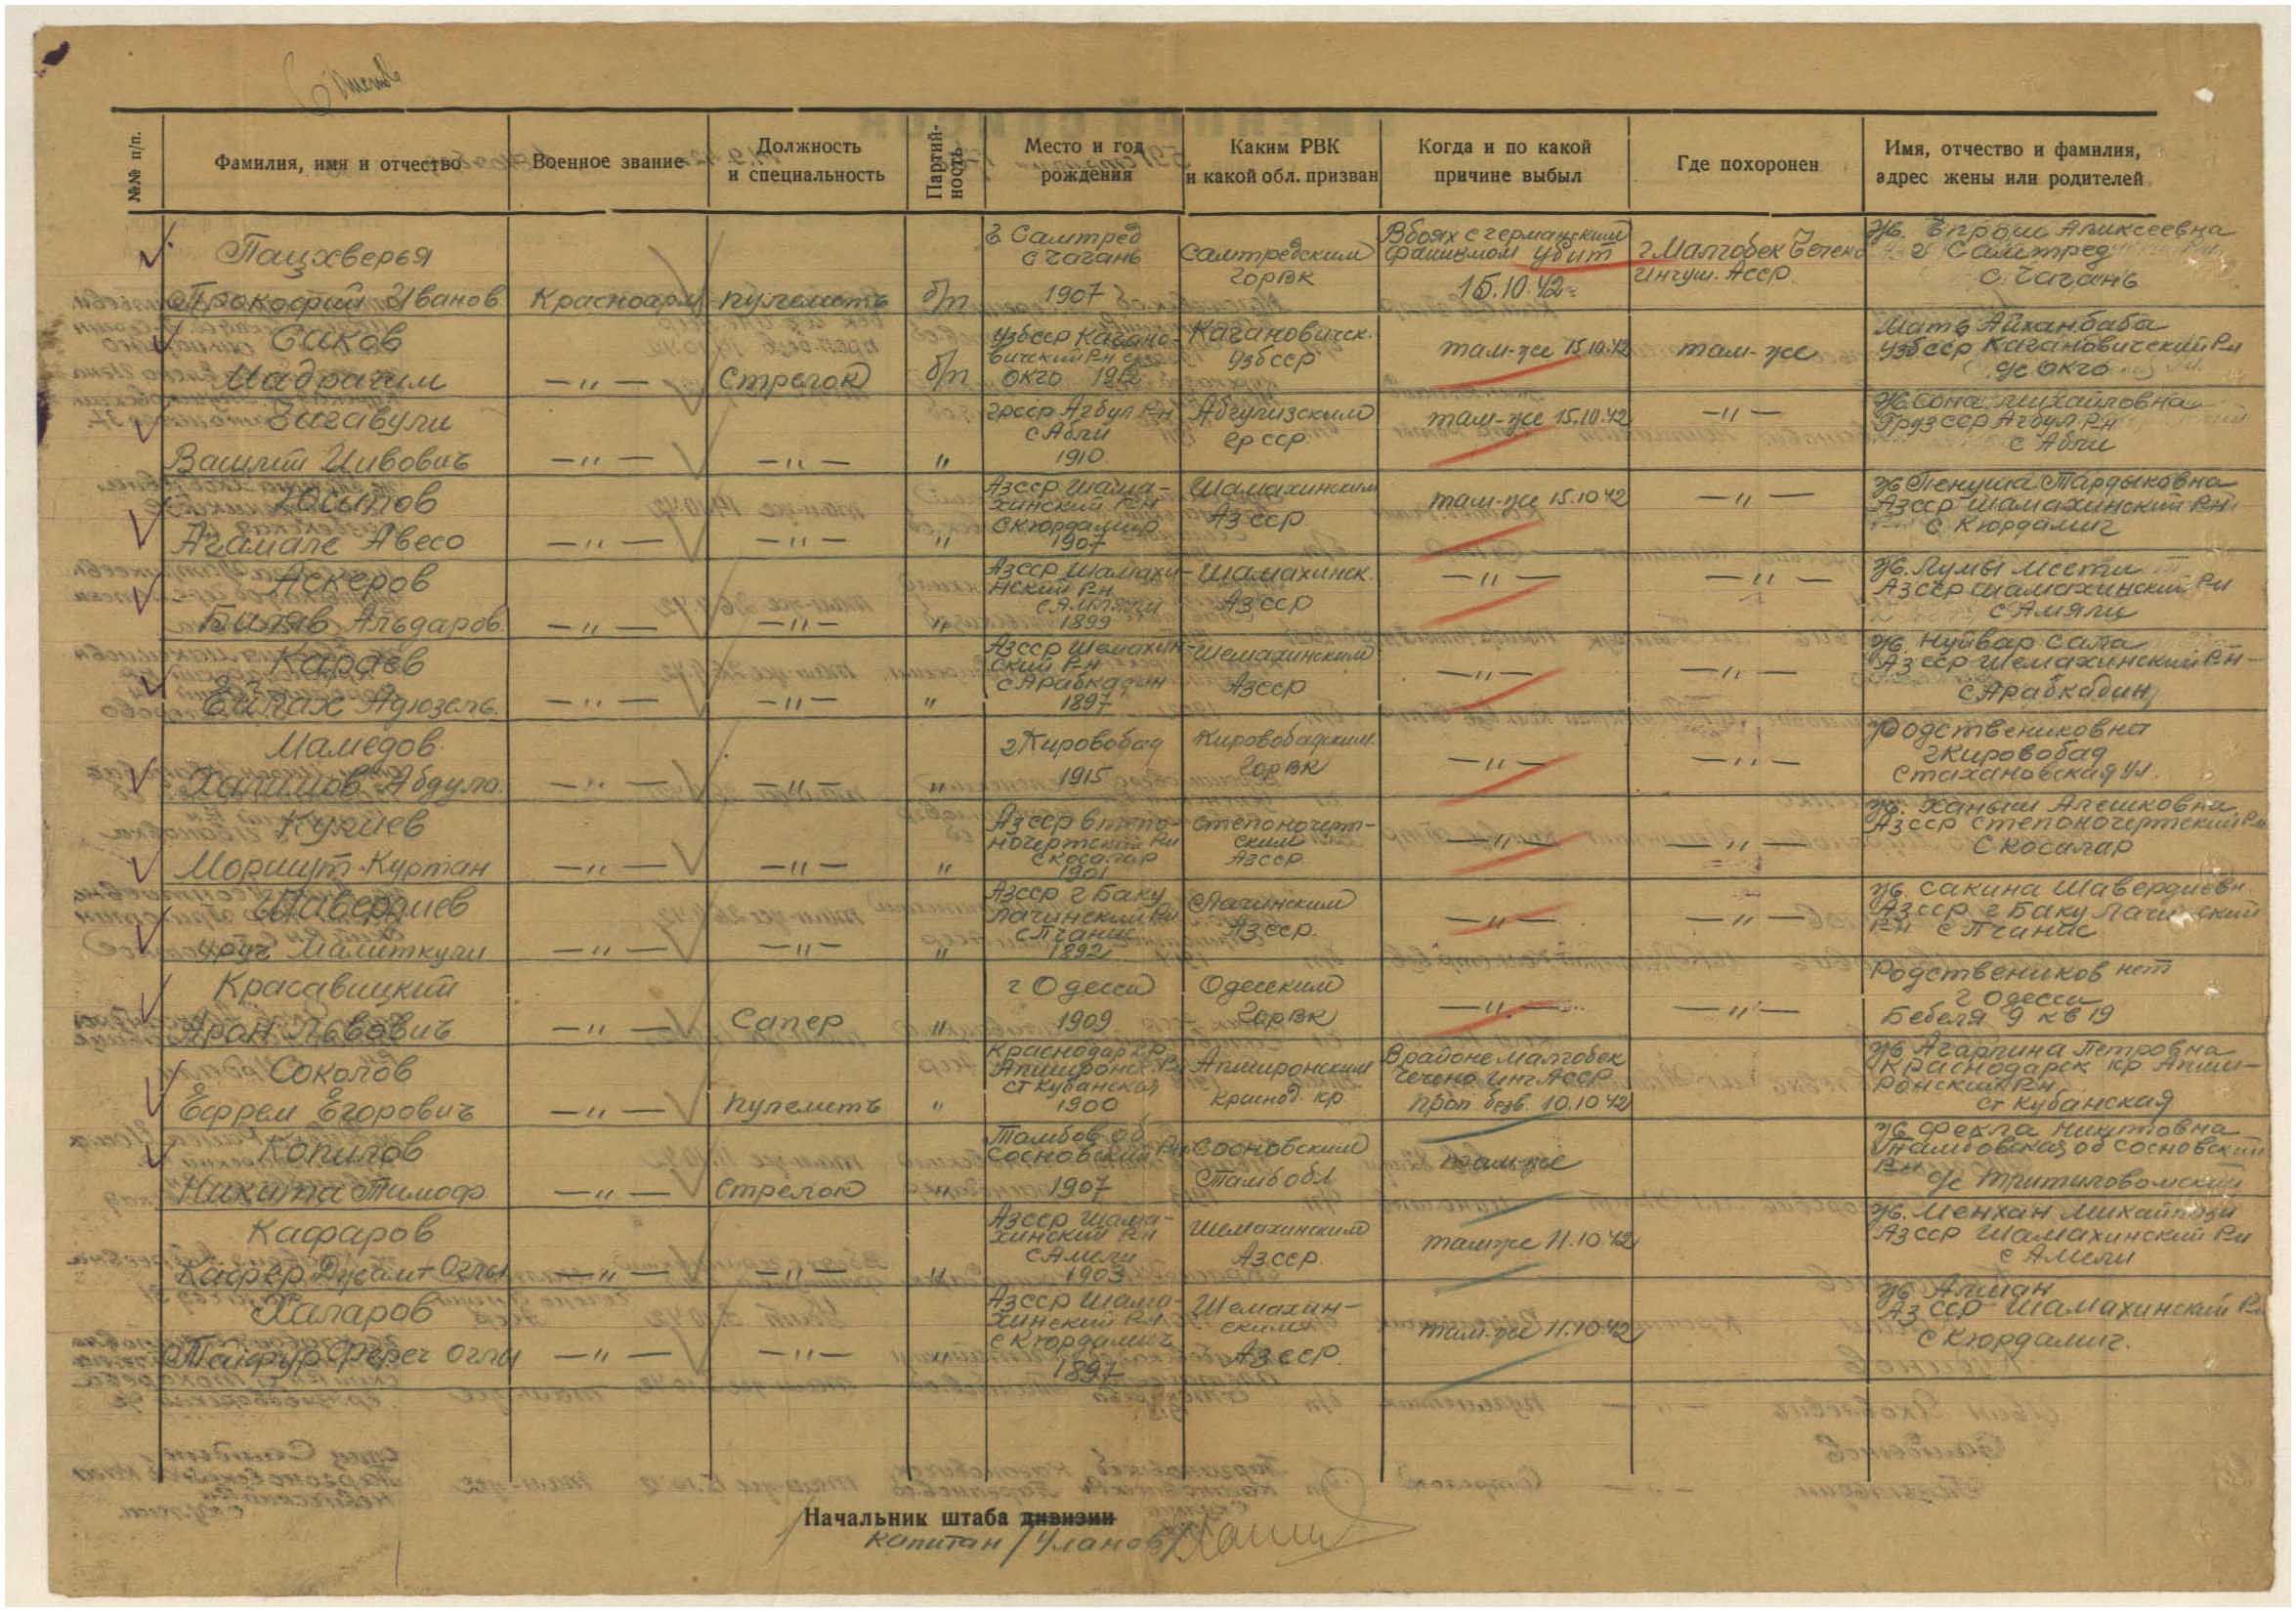 №№ п/п.
Фамилия, имя и отчество
Военное звание
Должность
и специальность
Партий-
ность
Место и год
рождения
Каким РВК
и какой обл. призван
Когда и по какой
причине выбыл
Где похоронен
Имя, отчество и фамилия,
адрес жены или родителей
Пацхверья
Прокофий Иванов
Красноарм
пулеметч
б/п
г Самтред
с Чагань
1907
Самтредским
ГорВК
В боях с германским
фашизмом убит
15.10.42
г. Малгобек Чечено
Ингуш. Асср.
Алиексеевна
г Самтред
с. Чагань
Саков
Мадрагим
— " —
Стрелок
б/п
Узбсср Кагано-
вичский Рн
окго 1912
Кагановичск.
Узбсср
там-же 15.10.42
там-же
Мать Айханбаба
Узбсср Кагановичский Рн
окго
Вашит
— " —
— " —
"
грсср Агбул Рн
с Абли
1910
гр сср
там-же 15.10.42
— " —
ж. Сона Михайловна
Груз сср Агбул Рн
с Абли
Юсупов
Агамале Авесо
— " —
— " —
"
Азсср Шама-
хинский Рн
с Кюрдамир
1907
Шамахинским
Аз сср
там-же 15.10.42
— " —
Азсср Шамахинский Рн
с Кюрдамиг
Аскеров
Биляв Альдаров
— " —
— " —
"
Азсср Шамахи-
нский Рн
1899
Шамахинск.
Аз сср
— " —
— " —
Азсср Шамахинский Рн
с Амяли
Караев
— " —
— " —
"
Азсср Шемахин-
ский Рн
с Арабкадин
1897
Шемахинским
Азсср
— " —
— " —
Аз сср Шемахинский Рн
с Арабкадин
Мамедов
Халилов Абдула
— " —
— " —
"
г Кировобад
1915
Кировобадским.
ГорВК
— " —
— " —
г Кировобад
Стахановская ул.
Кулиев
Моршут Куртан
— " —
— " —
"
ночертский Рн
с Косалар
1901
степоночерт-
ским
Азсср
— " —
— " —
Азсср Степоночертский Рн
с Косалар
Шавердиев
— " —
— " —
"
Азсср г Баку
Лачинский Рн
1892
Лачинским
Азсср.
— " —
— " —
ж. Сакина Шавердиевн.
Азсср г Баку Лачинский
Рн
Красавицкий
Аран Львович
— " —
Сапер
"
г Одесса
1909
Одесским
ГорВК
— " —
— " —
Родствеников нет
г Одесса
Бебеля 9 кв 19
Соколов
Ефрем Егорович
— " —
пулеметч
"
Краснодар кр
Апширонск. Рн
ст Кубанская
1900
Апширонским
Краснод. кр
В районе Малгобек
Чечено Инг Асср
проп безв. 10.10 42
Петровна
Краснодарск кр Апши-
ронский Рн
ст Кубанская
Копилов
Никита Тимоф.
— " —
Стрелок
"
Тамбов об
Сосновский Рн
1907
Сосновским
Тамб обл
там-же
ж. Фекла Никитовна
Тамбовская об Сосновский
Рн
Кафаров
Кафер Джамт Оглы
— " —
— " —
"
Азсср Шама-
хинский Рн
с Амели
1903
Шемахинским
Азсср.
там же 11.10.42
ж. Менхан
Азсср Шамахинский Рн
с Амели
Халаров
Тайфур Ферег Оглы
— " —
— " —
"
Азсср Шама-
хинский Рн
с Кюрдамич
1897
Шемахин-
ским
Азсср.
там-же 11.10.42
Аз сср Шамахинский Рн
с Кюрдамиг.
Начальник штаба дивизии
капитан /Уланов/